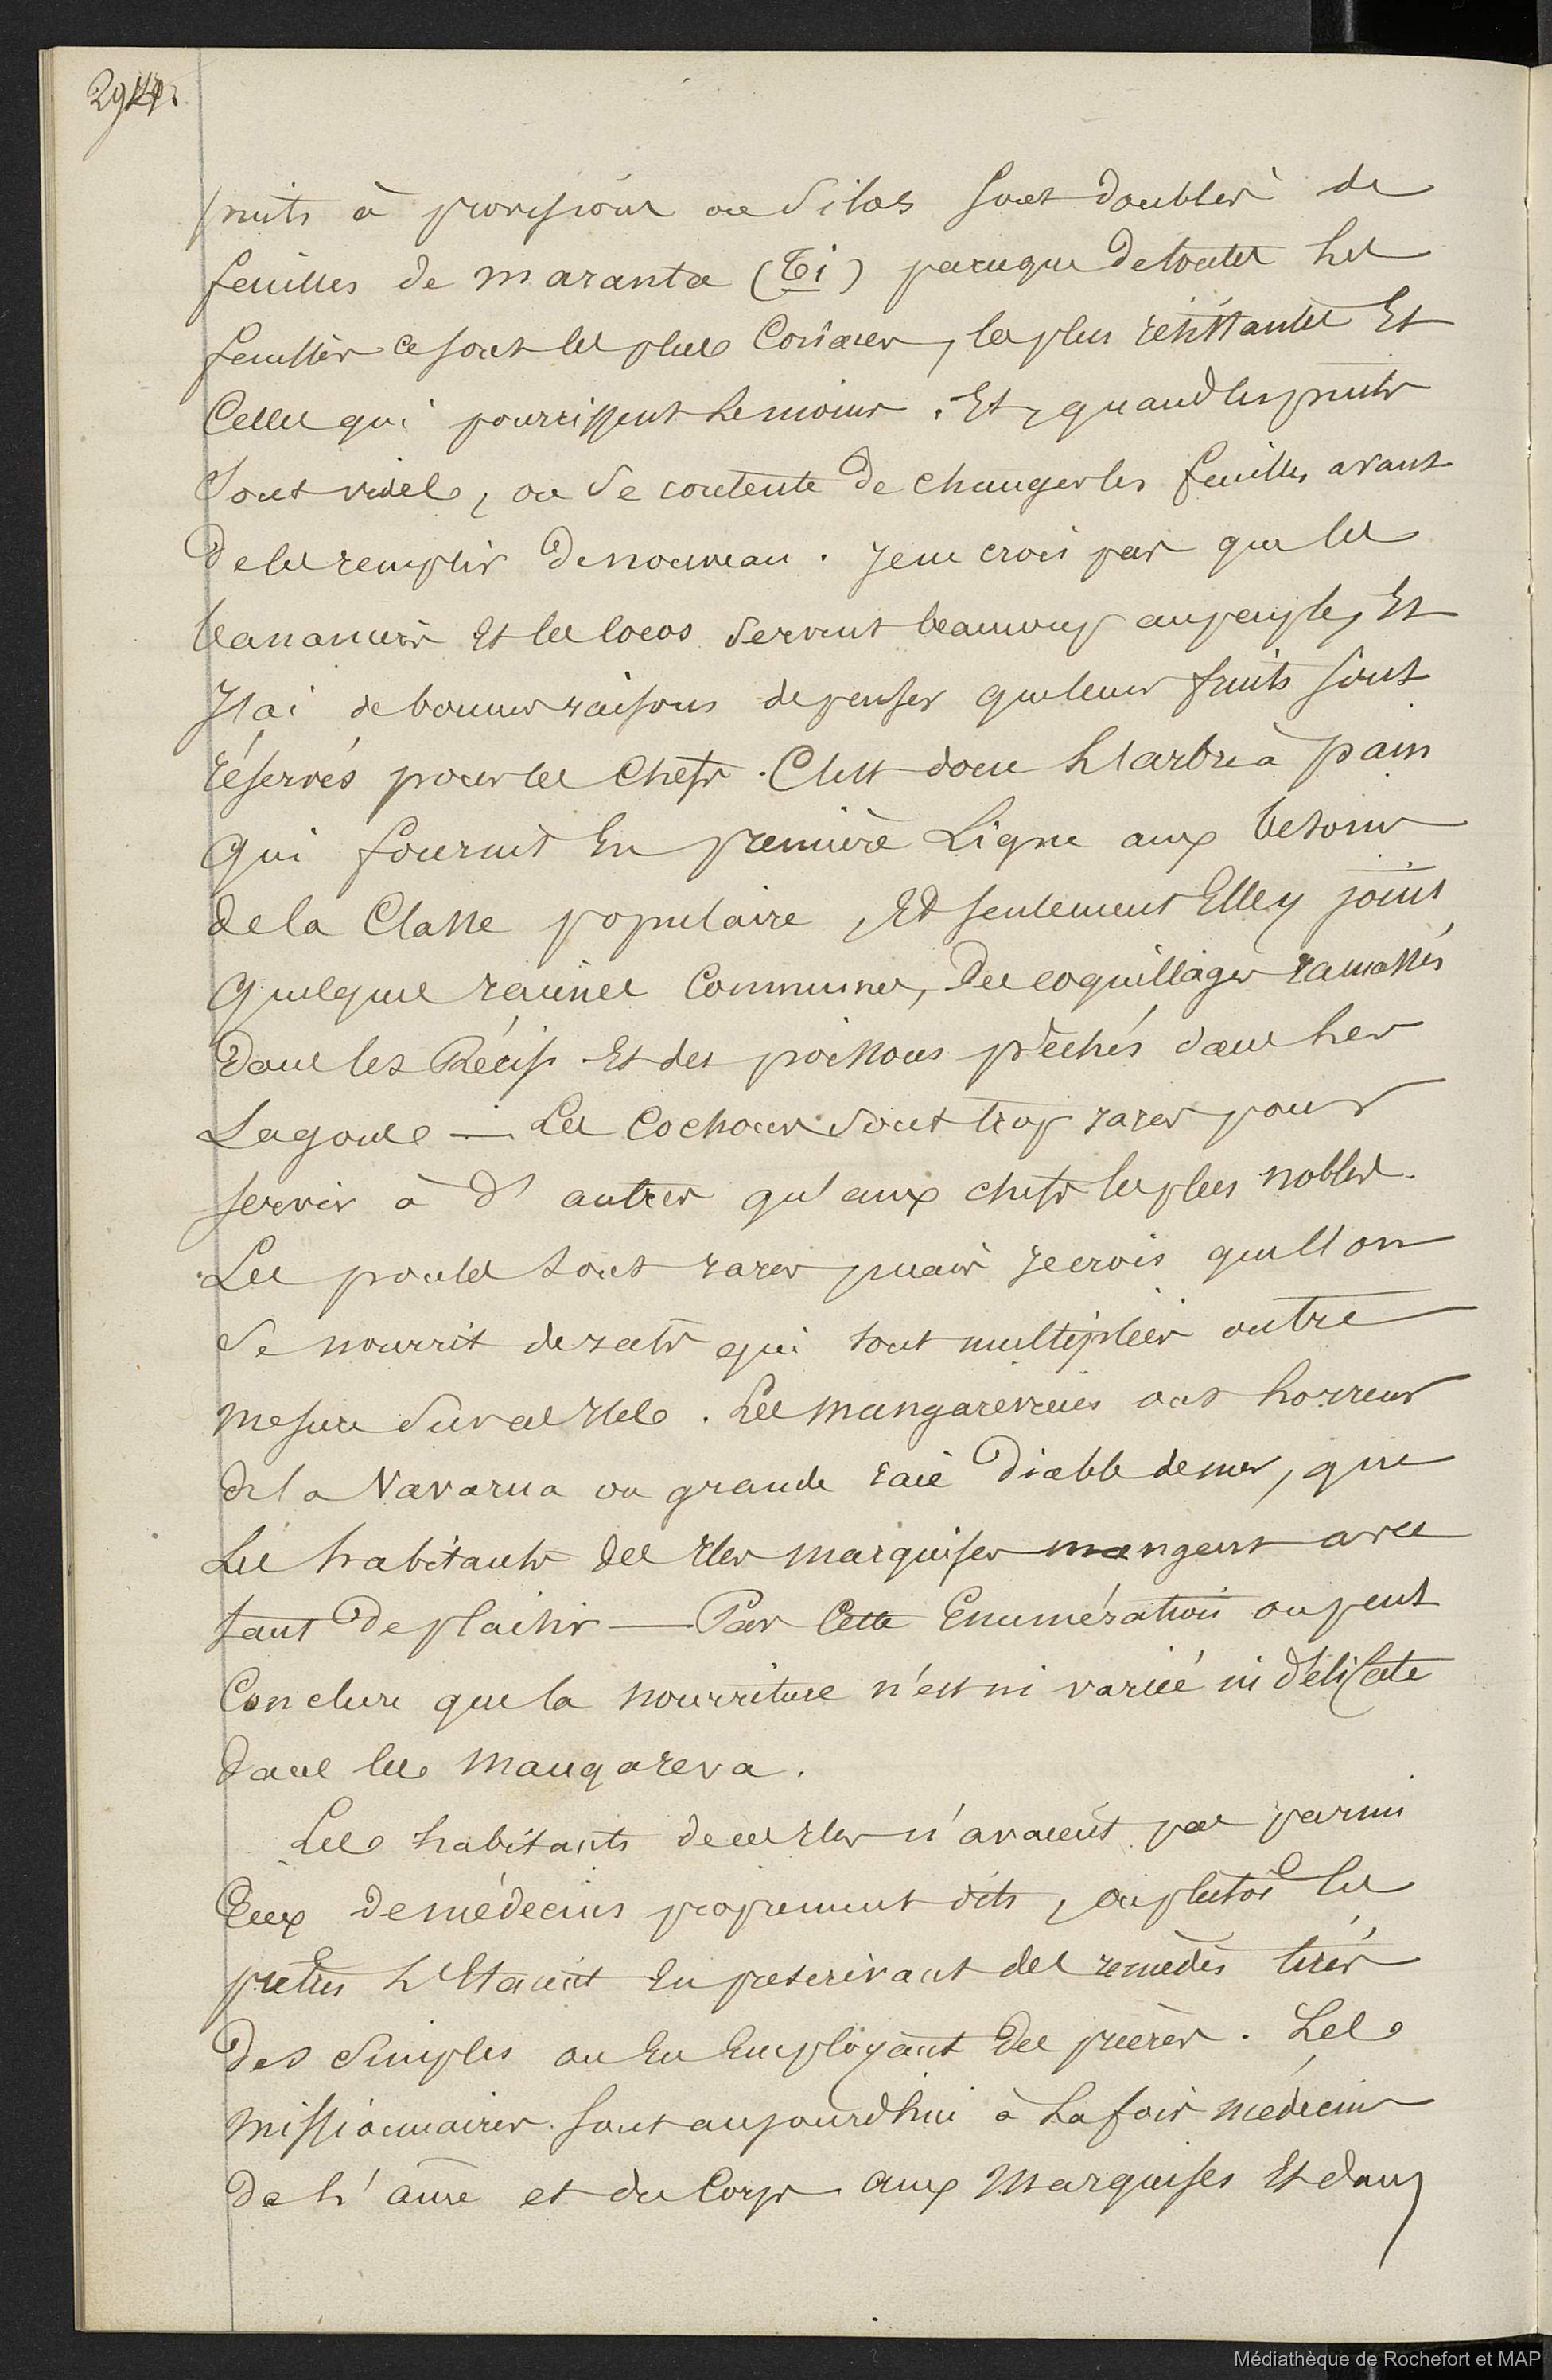 puits à provisions ou Silos sont doublés de
feuilles de maranta (Ti) parceque de toutes les
feuilles ce sont les plus Coriaces, les plus résistantes Et
Celles qui pourrissent le moins. Et, quand les puits
sont vides, on se contente de changer les feuilles avant
de les remplir de nouveau. Je ne crois pas que les
bananiers Et les cocos servent beaucoup au peuple, Et
J'ai de bonnes raisons de penser que leurs fruits sont
réservés pour les Chefs. C'est donc L'arbre à pain
qui fournit En première Ligne aux besoins
de la Classe populaire, Et seulement Elle y joint
quelques racines Communes, des coquillages ramassés
dans les Récifs Et des poissons pêchés dans les
Lagons — Les Cochons sont trop rares pour
servir à d'autres qu'aux chefs les plus nobles.
Les poules sont rares mais je crois que l'on
se nourrit de rats qui sont multipliés outre
mesure sur ces Iles. Les mangareviens ont horreur
de la Navarua ou grande raie Diable de mer, que
Les habitants des Iles marquises mangent avec
tant de plaisir — Par Cette Enumération on peut
Conclure que la nourriture n'est ni variée ni délicate
dans les Mangareva.
Les habitants de ces Iles n'avaient pas parmi
Eux de médecins proprement dits, ou plutôt les
prêtres L'Etaient En prescrivant des remèdes tirés
des Simples ou En Employant des prières. Les
missionnaires sont aujourdhui à la fois médecins
de l'âme et du Corps aux Marquises Et dans
Médiathèque de Rochefort et MAP